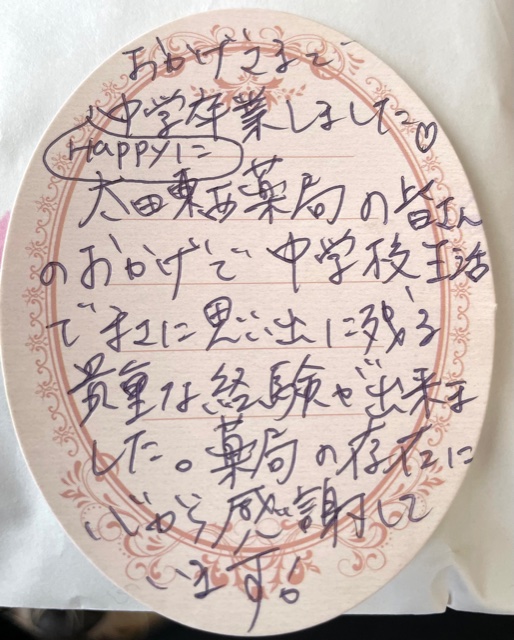 おかげさまで
中学卒業しました♡
Happyに
太田東西薬局の皆さん
のおかげで中学校生活
で本当に思い出に残る
貴重な経験が出来ま
した。薬局の存在に
心から感謝して
います。